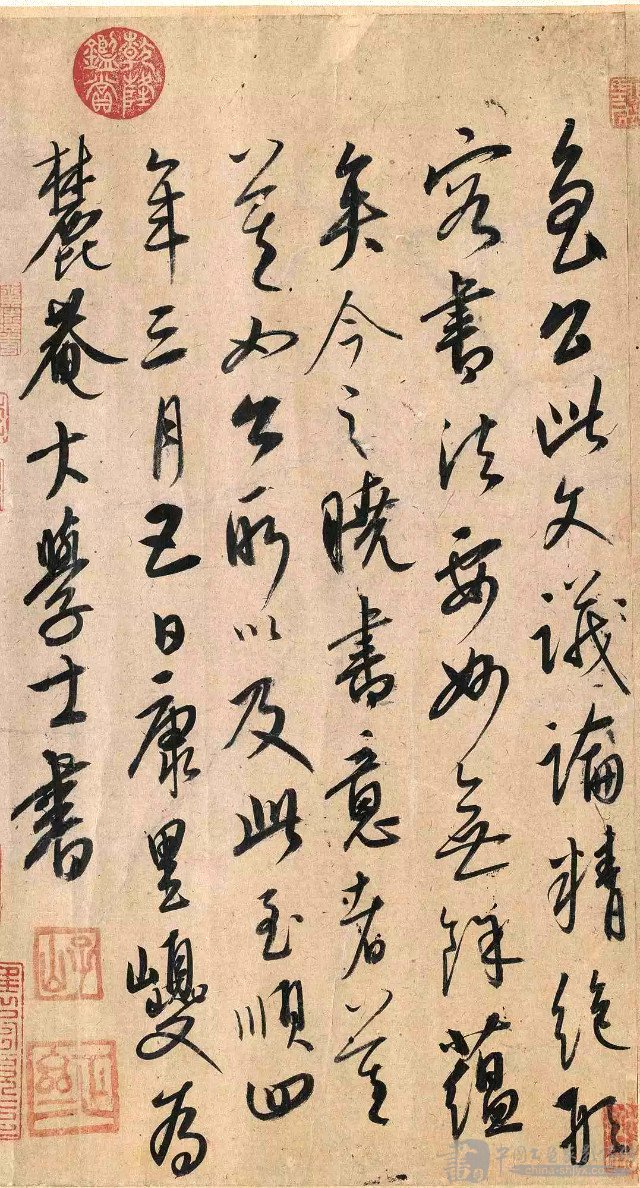 魯公此文議論精絶形
容書法要妙無餘蘊
矣今之曉書意者莫
莫如公所以及此至順四
年三月五日康里巎為
麓菴大學士書
乾隆鑑賞
子山